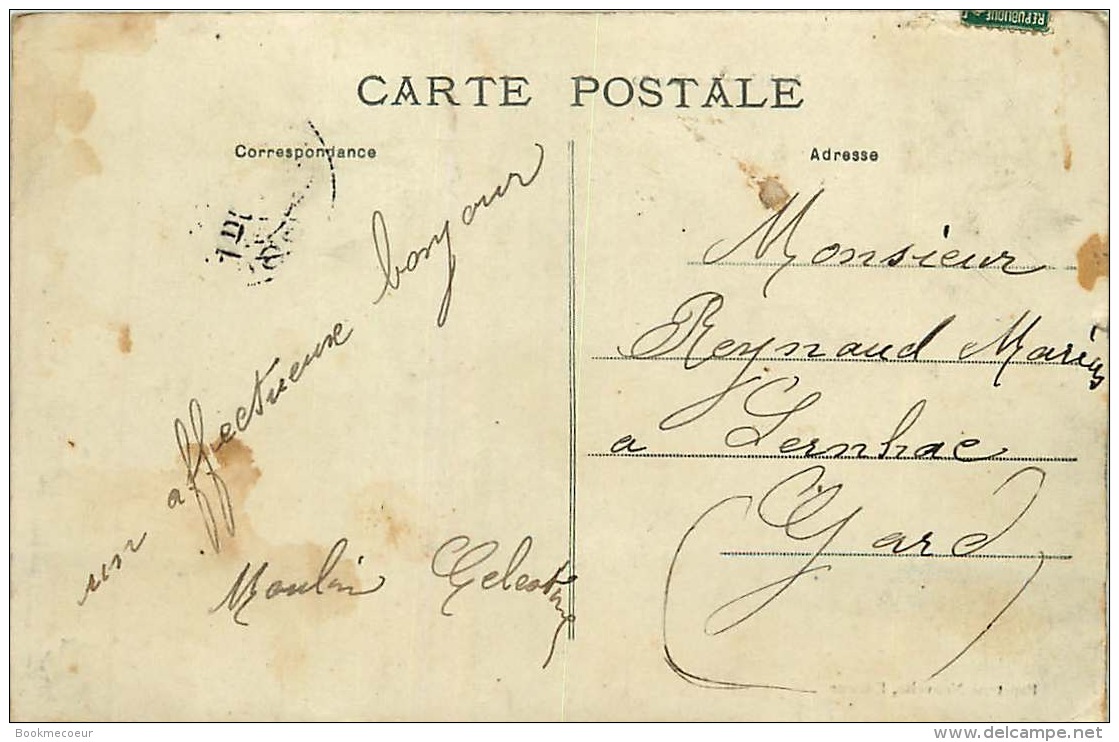 REPUBLIQUE
CARTE POSTALE
Correspondance
un affectueuse bonjour
Moulin Celestin
Adresse
Monsieur
Reynaud Marius
a Lernhac
Gard
Bookmecoeur
delcampe.net